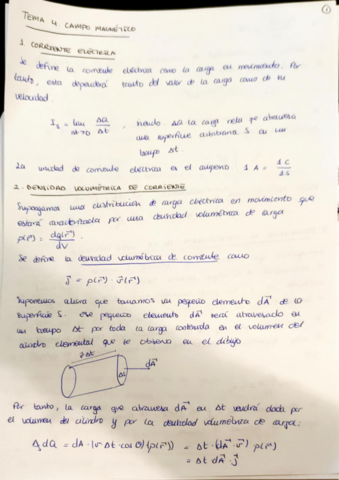 1
TEMA 4. CAMPO MAGNÉTICO
1. CORRIENTE ELÉCTRICA
Se define la corriente eléctrica como la carga en movimiento. Por
tanto, esta dependerá tanto del valor de la carga como de su
velocidad
I_s = lim Δt→0 ΔQ/Δt, siendo ΔQ la carga neta que atraviesa
una superficie arbitraria S en un
tiempo Δt
La unidad de corriente eléctrica es el amperio. 1 A = 1 C / 1 s
2. DENSIDAD VOLUMÉTRICA DE CORRIENTE
Supongamos una distribución de carga eléctrica en movimiento que
estará caracterizada por una densidad volumétrica de carga
ρ(r⃗) = dq(r⃗)/dV
Se define la densidad volumétrica de corriente como
j⃗ = ρ(r⃗) · v⃗(r⃗)
Suponemos ahora que tomamos un pequeño elemento dA⃗ de la
superficie S. Ese pequeño elemento dA⃗ será atravesado en
un tiempo Δt por toda la carga contenida en el volumen del
cilindro elemental que se observa en el dibujo
Δt
dA⃗
Por tanto, la carga que atraviesa dA⃗ en Δt vendrá dada por
el volumen del cilindro y por la densidad volumétrica de carga:
dQ = dA · (v · Δt · cos θ)(ρ(r⃗)) = Δt · (dA⃗ · v⃗) ρ(r⃗)
= Δt dA⃗ · j⃗